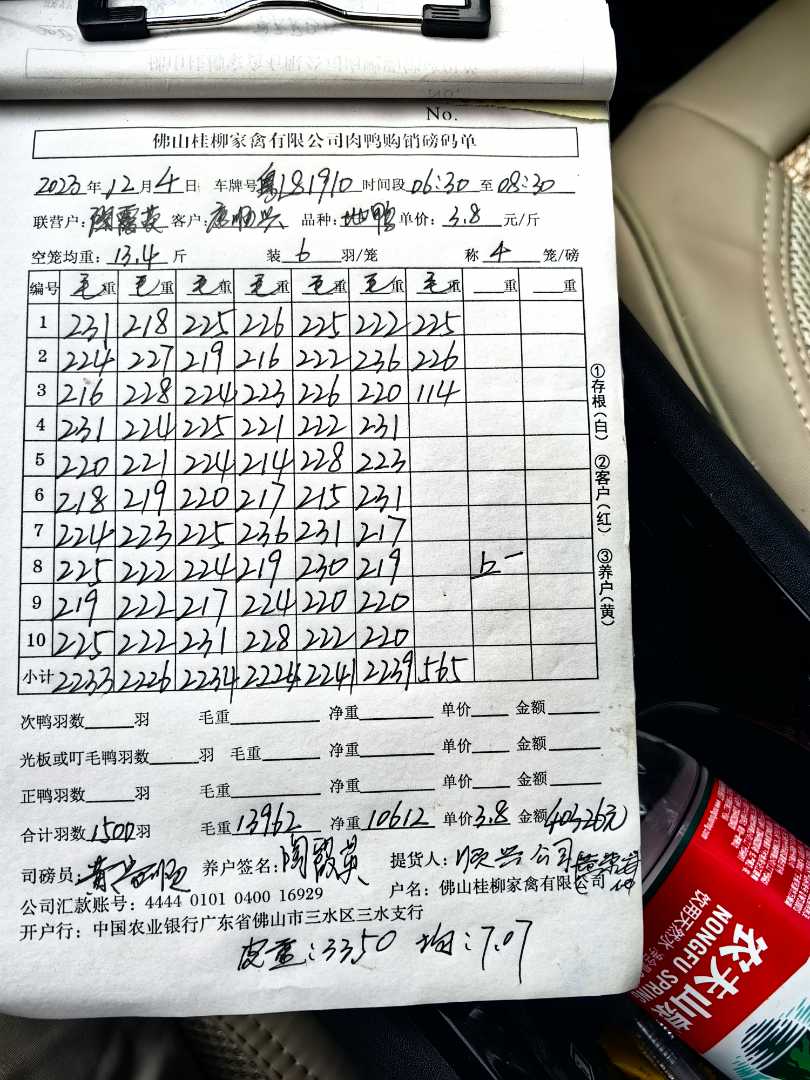 No.
佛山桂柳家禽有限公司肉鸭购销磅码单
2023年12月4日 车牌号 粤L81910 时间段 06:30 至 08:30
联营户: 陶霞英 客户: 顺兴 品种: 地鸭 单价: 3.8 元/斤
空笼均重: 13.4 斤 装 6 羽/笼 称 4 笼/磅
编号 毛重 毛重 毛重 毛重 毛重 毛重 毛重 重 重
1 231 218 225 226 225 222 225
2 224 227 219 216 222 236 226
3 216 228 224 223 226 220 114
4 231 224 225 221 222 231
5 220 221 224 214 228 223
6 218 219 220 217 215 231
7 224 223 225 236 231 217
8 225 222 224 219 230 219
9 219 222 217 224 220 220
10 225 222 231 228 222 220
小计 2233 2226 2234 2224 2241 2239 565
①存根(白) ②客户(红) ③养户(黄)
次鸭羽数 羽 毛重 净重 单价 金额
光板或叮毛鸭羽数 羽 毛重 净重 单价 金额
正鸭羽数 羽 毛重 净重 单价 金额
合计羽数 1500 羽 毛重 13962 净重 10612 单价 3.8 金额 40326元
司磅员: 养户签名: 陶霞英 提货人: 顺兴公司
公司汇款账号: 4444 0101 0400 16929 户名: 佛山桂柳家禽有限公司
开户行: 中国农业银行广东省佛山市三水区三水支行
皮重: 3350 均: 7.07
农夫山泉
NONGFU SPRING
饮用天然水